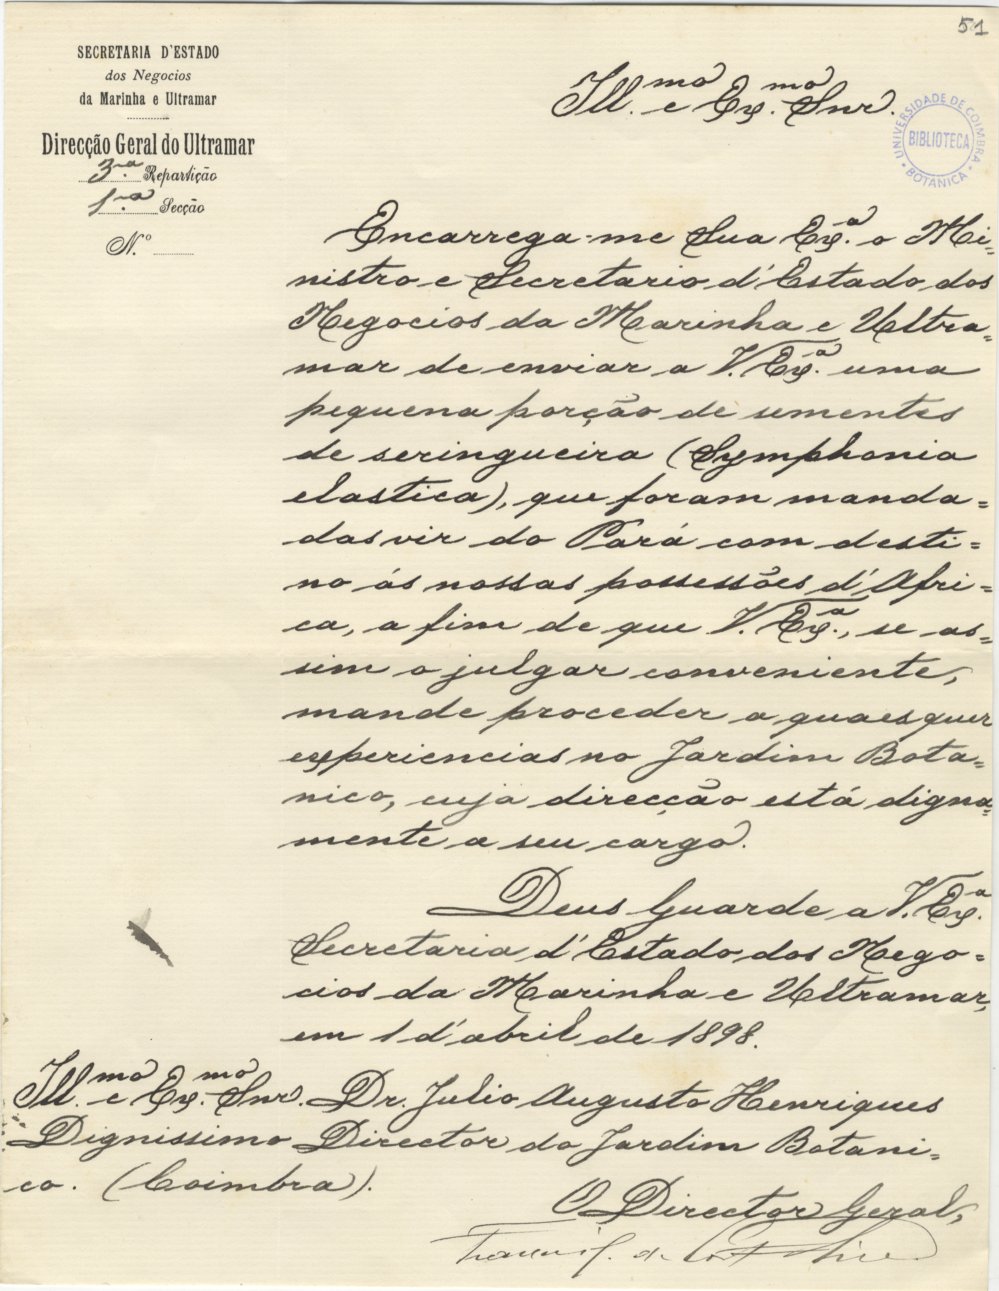 51
SECRETARIA D'ESTADO
dos Negocios
da Marinha e Ultramar
Direcção Geral do Ultramar
3.ª Repartição
1.ª Secção
N.º
Ill.mo e Ex.mo Snr.
UNIVERSIDADE DE COIMBRA
BIBLIOTECA
BOTANICA
Encarrega-me Sua Ex.ª o Mi=
nistro e Secretario d'Estado dos
Negocios da Marinha e Ultra=
mar de enviar a V. Ex.ª uma
pequena porção de sementes
de seringueira (Symphonia
elastica), que foram manda=
das vir do Pará com desti=
no ás nossas possessões d'Afri=
ca, a fim de que V. Ex.ª, se as=
sim o julgar conveniente,
mande proceder a quaesquer
experiencias no Jardim Bota=
nico, cuja direcção está digna=
mente a seu cargo.
Deus Guarde a V. Ex.ª
Secretaria d'Estado dos Nego=
cios da Marinha e Ultramar,
em 1 d'abril de 1898.
Ill.mo e Ex.mo Snr. Dr. Julio Augusto Henriques
Dignissimo Director do Jardim Botani=
co. (Coimbra).
O Director Geral,